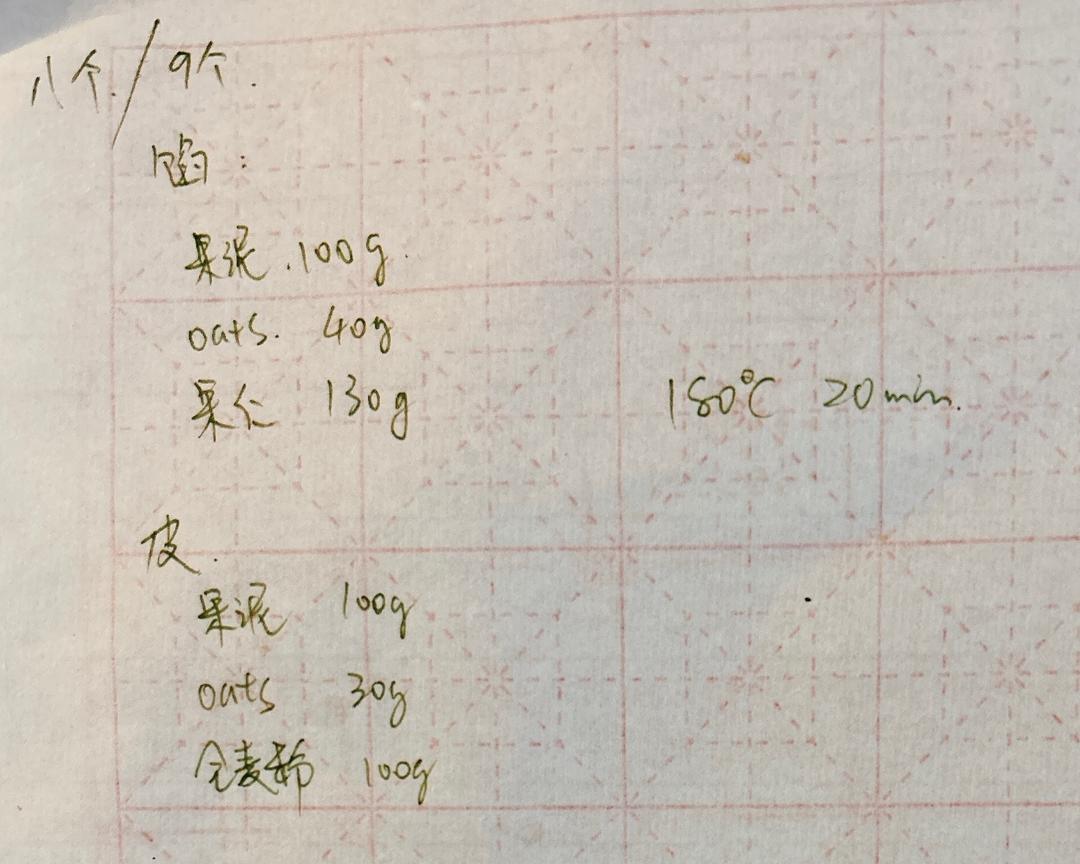 八个/9个.
馅:
果泥.100g.
oats. 40g
果仁 130g
180°C 20min.
皮.
果泥 100g
oats 30g
全麦粉 100g